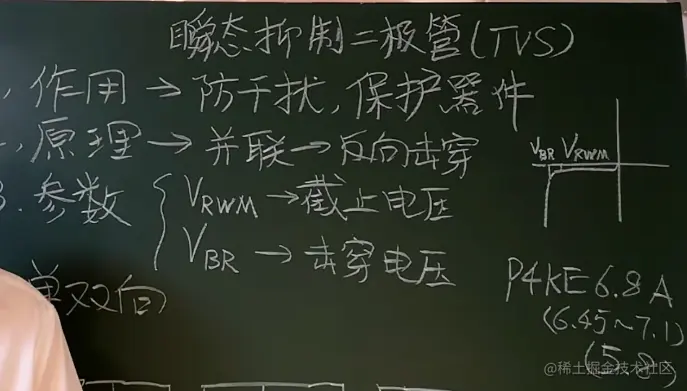 瞬态抑制二极管(TVS)
、作用→防干扰,保护器件
、原理→并联→反向击穿
3.参数 VRWM→截止电压
VBR→击穿电压
VBR VRWM
单双向
P4KE6.8A
(6.45~7.1)
(5.8)
@稀土掘金技术社区